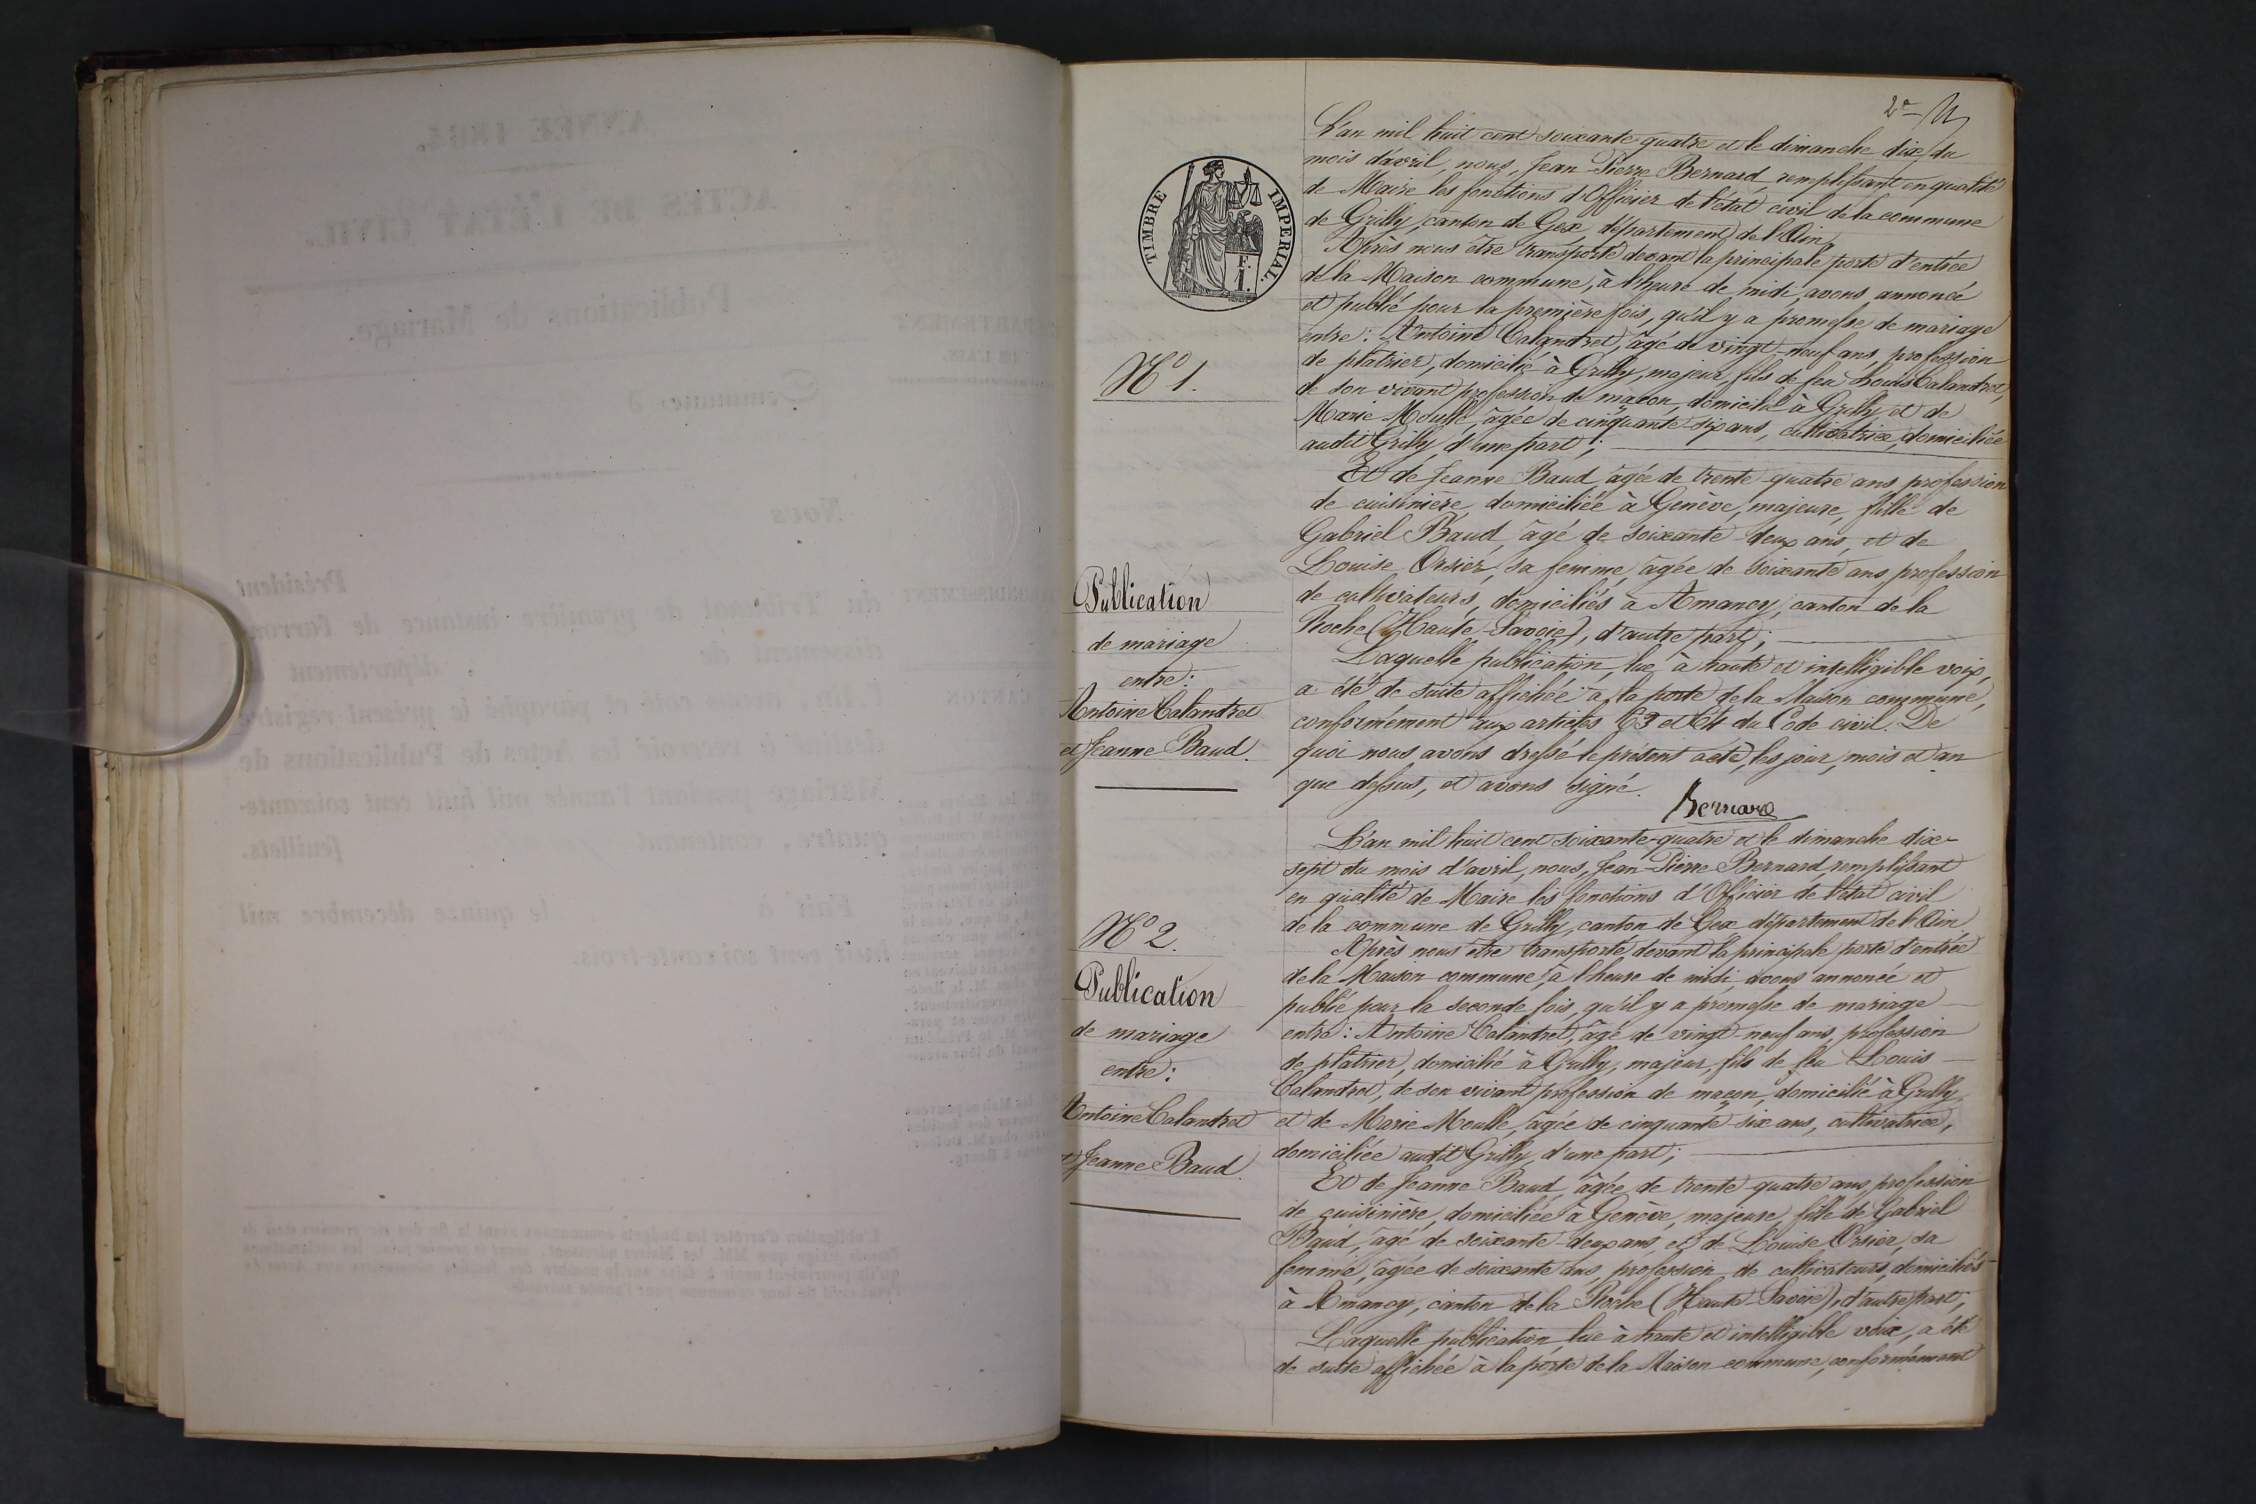 2e
TIMBRE IMPERIAL.
F.
1.
N° 1.
Publication
de mariage
entre:
Antoine Calandret
et Jeanne Baud.
L'an mil huit cent soixante quatre et le dimanche dix du
mois d'avril, nous, Jean Pierre Bernard, remplissant en qualité
de Maire les fonctions d'Officier de l'état civil de la commune
de Grilly, canton de Gex, département de l'Ain,
Après nous être transporté devant la principale porte d'entrée
de la Maison commune, à l'heure de midi, avons annoncé
et publié pour la première fois, qu'il y a promesse de mariage
entre: Antoine Calandret, âgé de vingt-neuf ans, profession
de platrier, domicilié à Grilly, majeur, fils de feu Louis Calandret,
de son vivant profession de maçon, domicilié à Grilly et de
Marie Moulle, âgée de cinquante-six ans, cultivatrice, domiciliée
audit Grilly, d'une part;
Et de Jeanne Baud, âgée de trente-quatre ans, profession
de cuisinière, domiciliée à Genève, majeure, fille de
Gabriel Baud, âgé de soixante-deux ans, et de
Louise Orsier, sa femme, âgée de soixante ans, profession
de cultivateurs, domiciliés à Amancy, canton de la
Roche (Haute-Savoie), d'autre part;
Laquelle publication, lue à haute et intelligible voix,
a été de suite affichée à la porte de la Maison commune,
conformément aux articles 63 et 64 du Code civil. De
quoi nous avons dressé le présent acte, les jour, mois et an
que dessus, et avons signé.
Bernard
N° 2.
Publication
de mariage
entre:
Antoine Calandret
et Jeanne Baud.
L'an mil huit cent soixante-quatre et le dimanche dix-
sept du mois d'avril, nous, Jean-Pierre Bernard, remplissant
en qualité de Maire les fonctions d'Officier de l'état civil
de la commune de Grilly, canton de Gex département de l'Ain,
Après nous être transporté devant la principale porte d'entrée
de la Maison commune, à l'heure de midi, avons annoncé et
publié pour la seconde fois, qu'il y a promesse de mariage
entre: Antoine Calandret, âgé de vingt-neuf ans, profession
de platrier, domicilié à Grilly, majeur, fils de feu Louis
Calandret, de son vivant profession de maçon, domicilié à Grilly
et de Marie Moulle, âgée de cinquante-six ans, cultivatrice,
domiciliée audit Grilly, d'une part;
Et de Jeanne Baud, âgée de trente-quatre ans, profession
de cuisinière, domiciliée à Genève, majeure, fille de Gabriel
Baud, âgé de soixante-deux ans, et de Louise Orsier, sa
femme, âgée de soixante ans, profession de cultivateurs, domiciliés
à Amancy, canton de la Roche (Haute-Savoie), d'autre part;
Laquelle publication, lue à haute et intelligible voix, a été
de suite affichée à la porte de la Maison commune, conformément